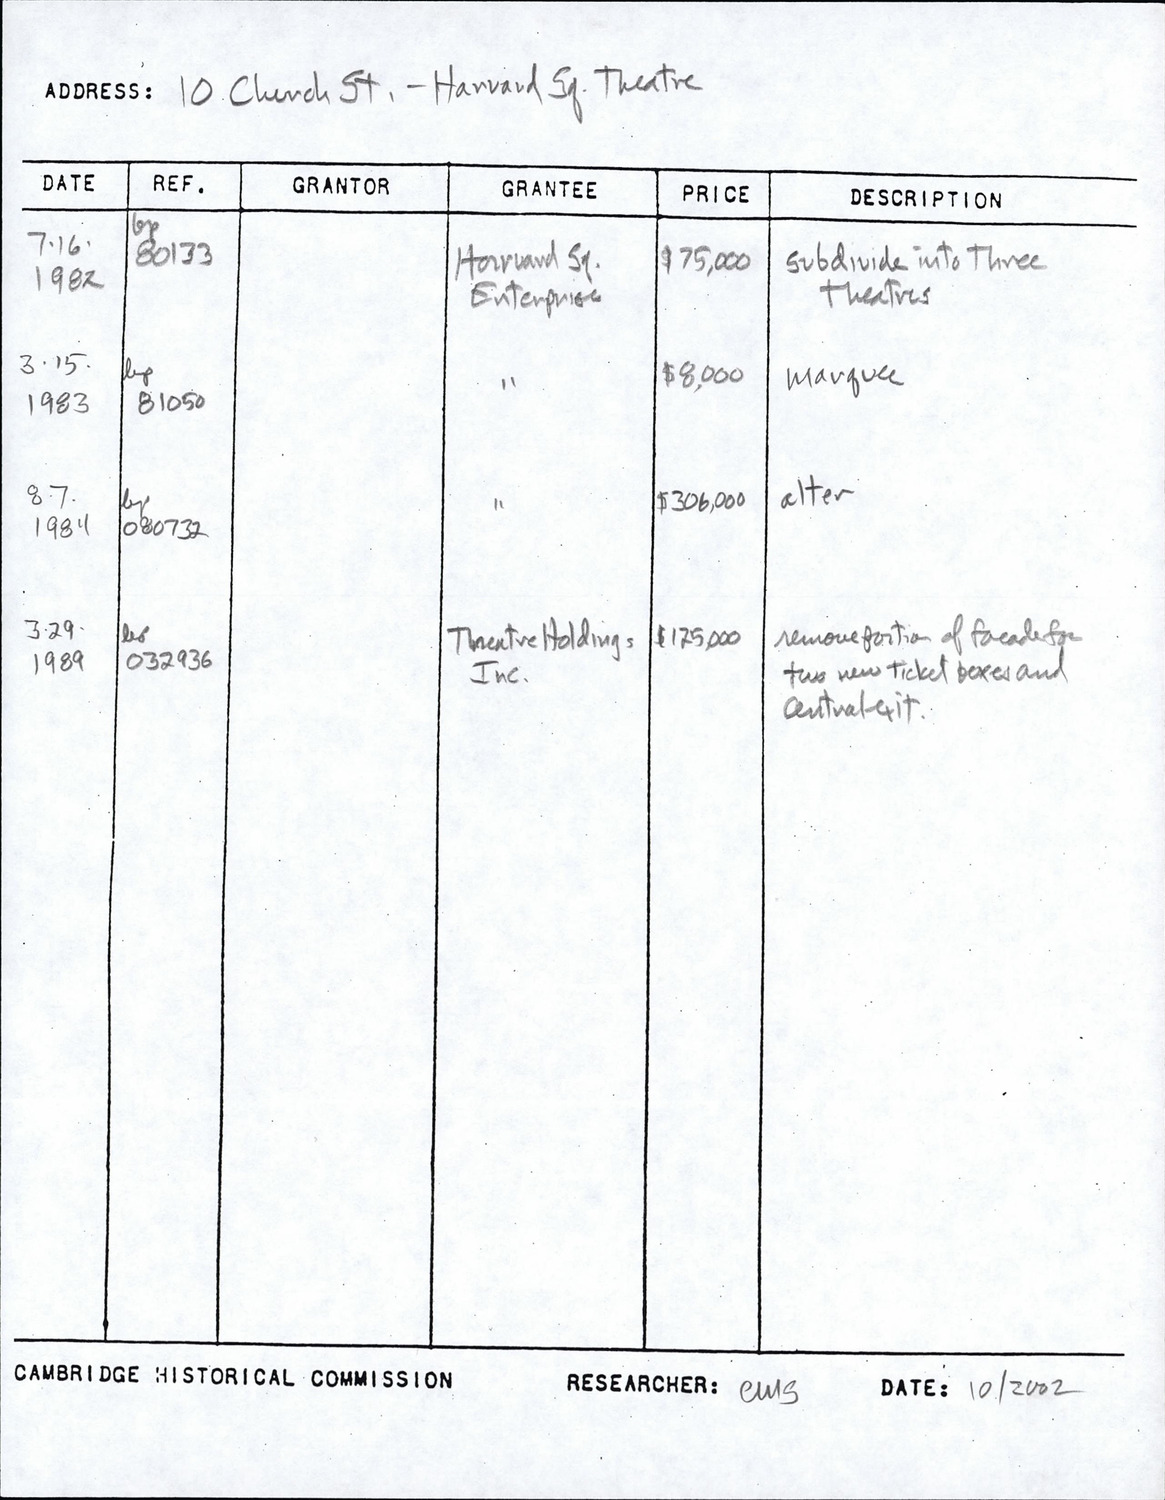 ADDRESS: 10 Church St. - Harvard Sq. Theatre
DATE REF. GRANTOR GRANTEE PRICE DESCRIPTION
7.16. bp
1982 80133 Harvard Sq. $75,000 subdivide into three
Enterprise theatres
3.15. bp
1983 81050 " $8,000 marquee
8.7. bp
1984 080732 " $306,000 alter
3.29. bp Theatre Holdings $125,000 remove portion of facade for
1989 032936 Inc. two new ticket boxes and
central exit.
CAMBRIDGE HISTORICAL COMMISSION RESEARCHER: EMS DATE: 10/2002